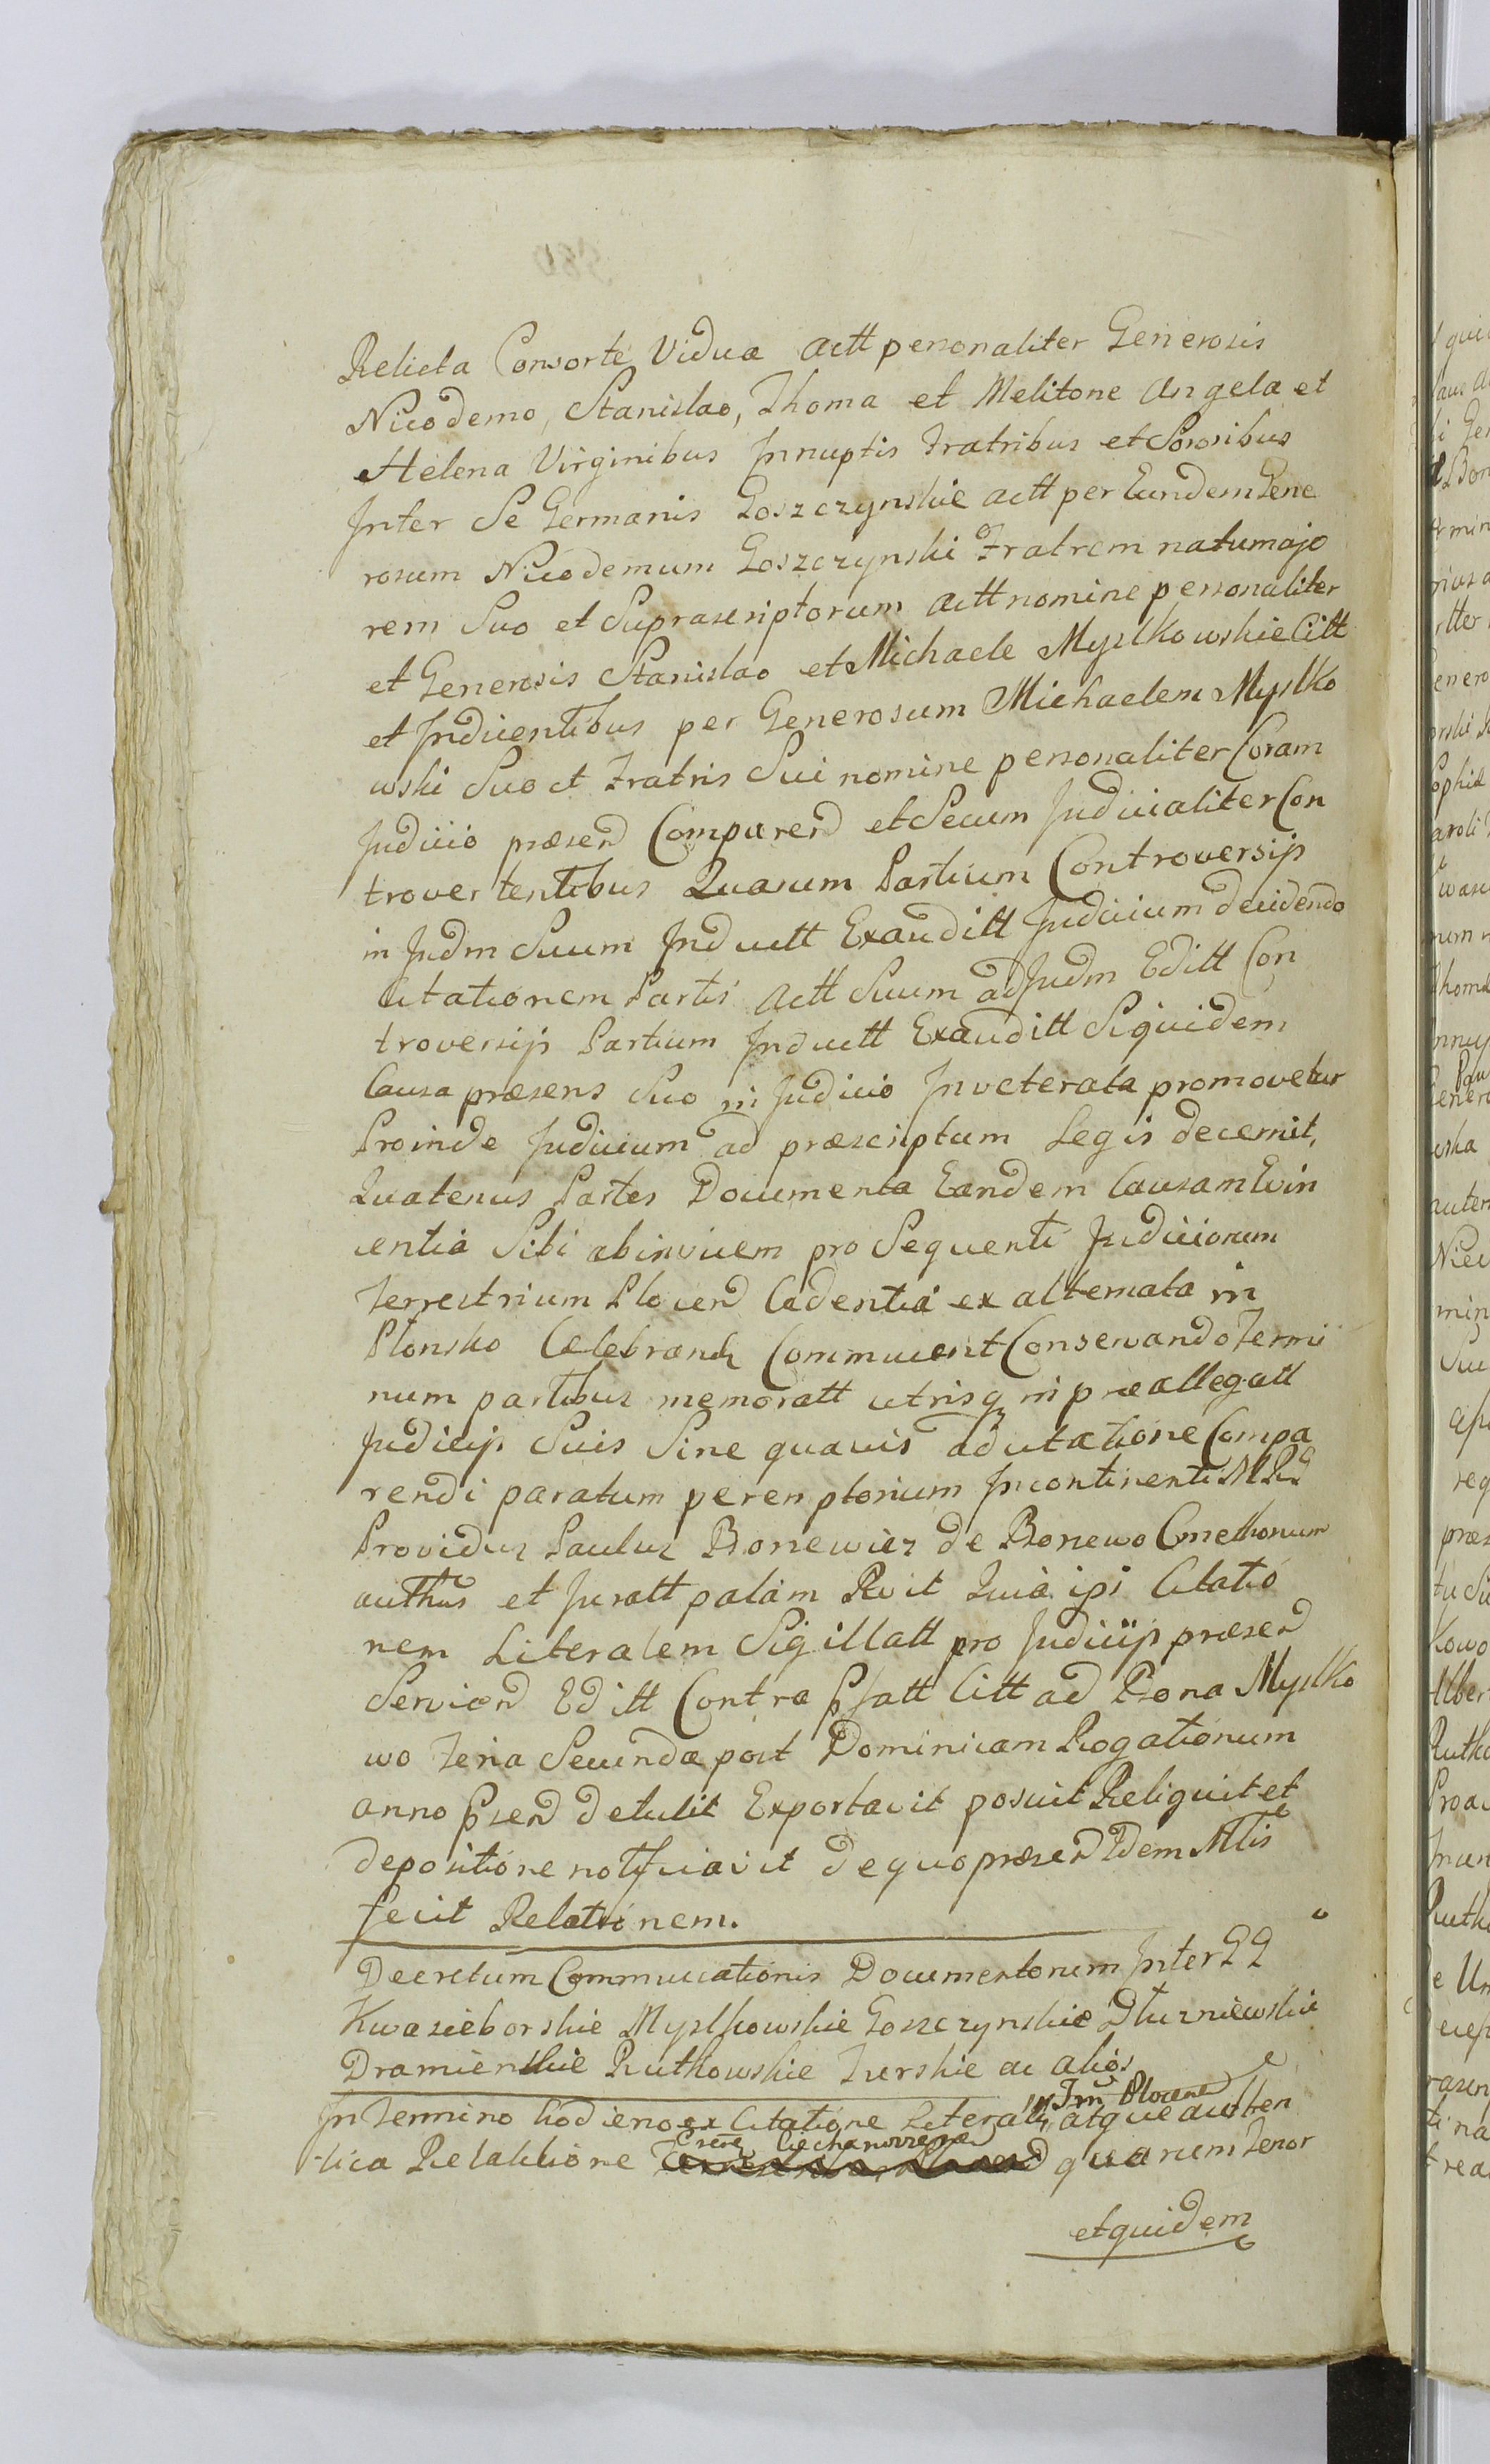 Relicta Consorte Vidua actt personaliter Generosis
Nicodemo, Stanislao, Thoma et Melitone Angela et
Helena Virginibus Innuptis Fratribus et Sororibus
Inter Se Germanis Goszczynskie actt per Eundem Gene
rosum Nicodemum Goszczynski Fratrem natumajo
rem Suo et Suprascriptorum actt nomine personaliter
et Generosis Stanislao et Michaele Myslkowskie Citt
et Inducentibus per Generosum Michaelem Myslko
wski Suo et Fratris Sui nomine personaliter Coram
Judicio præsend Comparend et Secum Judicialiter Con
trovertentibus Quarum Partium Controversijs
in Judm Suum Inductt Exauditt Judicium decidendo
Citationem Partis Actt Suum ad Judm Editt Con
troversijs Partium Inductt Exauditt Siquidem
Causa præsens Suo in Judicio Inveterata promovetur
Proinde Judicium ad præscriptum Legis decernit,
Quatenus Partes Documenta Eandem Causam Evin
centia Sibi abinvicem pro Sequenti Judiciorum
Terrestrium Plocend Cadentia ex alternata in
Plonsko Celebrand Communicent Conservando Termi
num partibus memoratt utrisq in præallegatt
Judicijs Suis Sine quavis adcitatione Compa
rendi paratum peremptorium Incontinenti
Providus Paulus Bonewicz de Bonewo Cmethonum
authus et Juratt palam Rvit Quia ipse Citatio
nem Literalem Sigillatt pro Judicijs præsend
Serviend Editt Contra psatt Citt ad Bona Myslko
wo Feria Secunda post Dominicam Rogationum
anno psend detulit Exportavit posuit Reliquit et
depositione notificavit de quo præsend
fecit Relationem.
Decretum Communicationis Documentorum Inter GG
Kwasieborskie Myslkowskie Goszczynskie Dłuzniewskie
Dramienskie Rutkowskie Turskie ac alios
in Trm Plocend
In Termino hodierno ex Citatione Literali, atque authen
Ciechanovien
tica Relatione quarum Tenor
et quidem